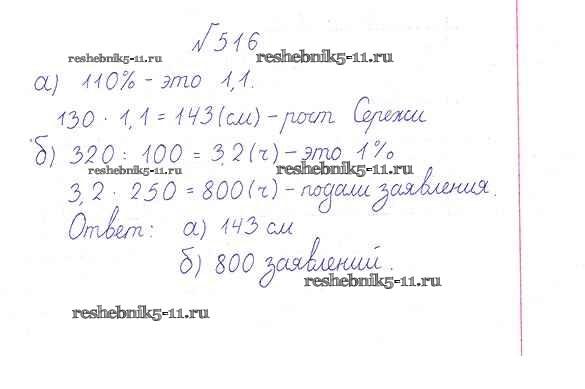 №516
reshebnik5-11.ru reshebnik5-11.ru
а) 110% - это 1,1.
130 · 1,1 = 143 (см) - рост Сережи
б) 320 : 100 = 3,2 (ч) - это 1%
reshebnik5-11.ru reshebnik5-11.ru
3,2 · 250 = 800 (ч) - подали заявления.
Ответ: а) 143 см
б) 800 заявлений.
reshebnik5-11.ru
reshebnik5-11.ru